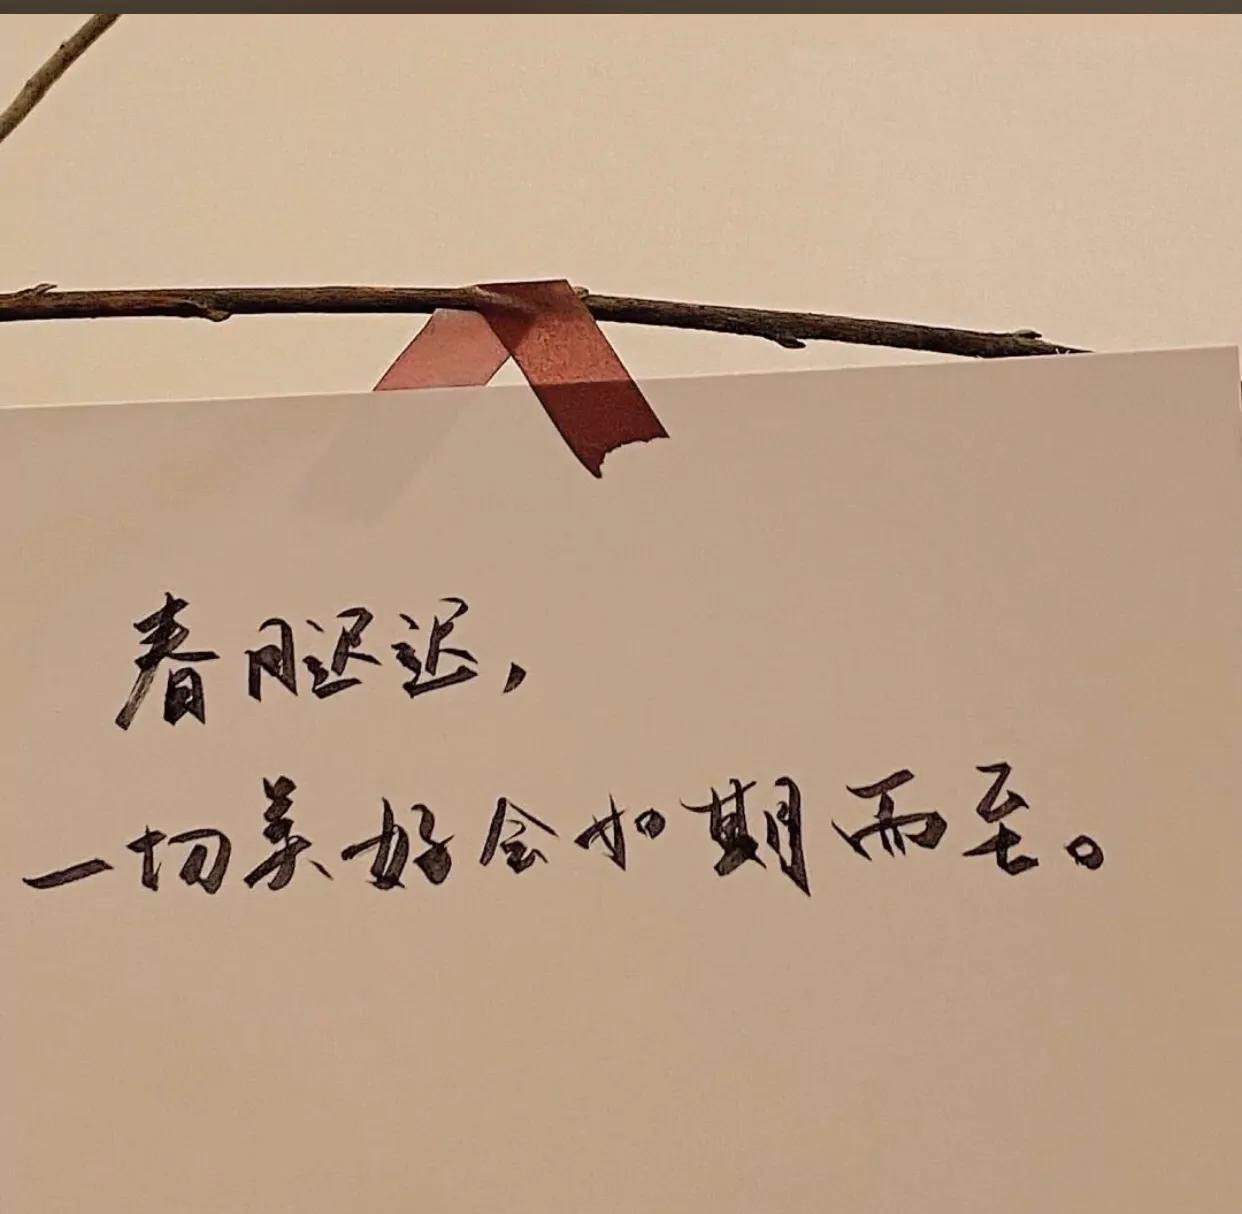 春日迟迟，
一切美好会如期而至。